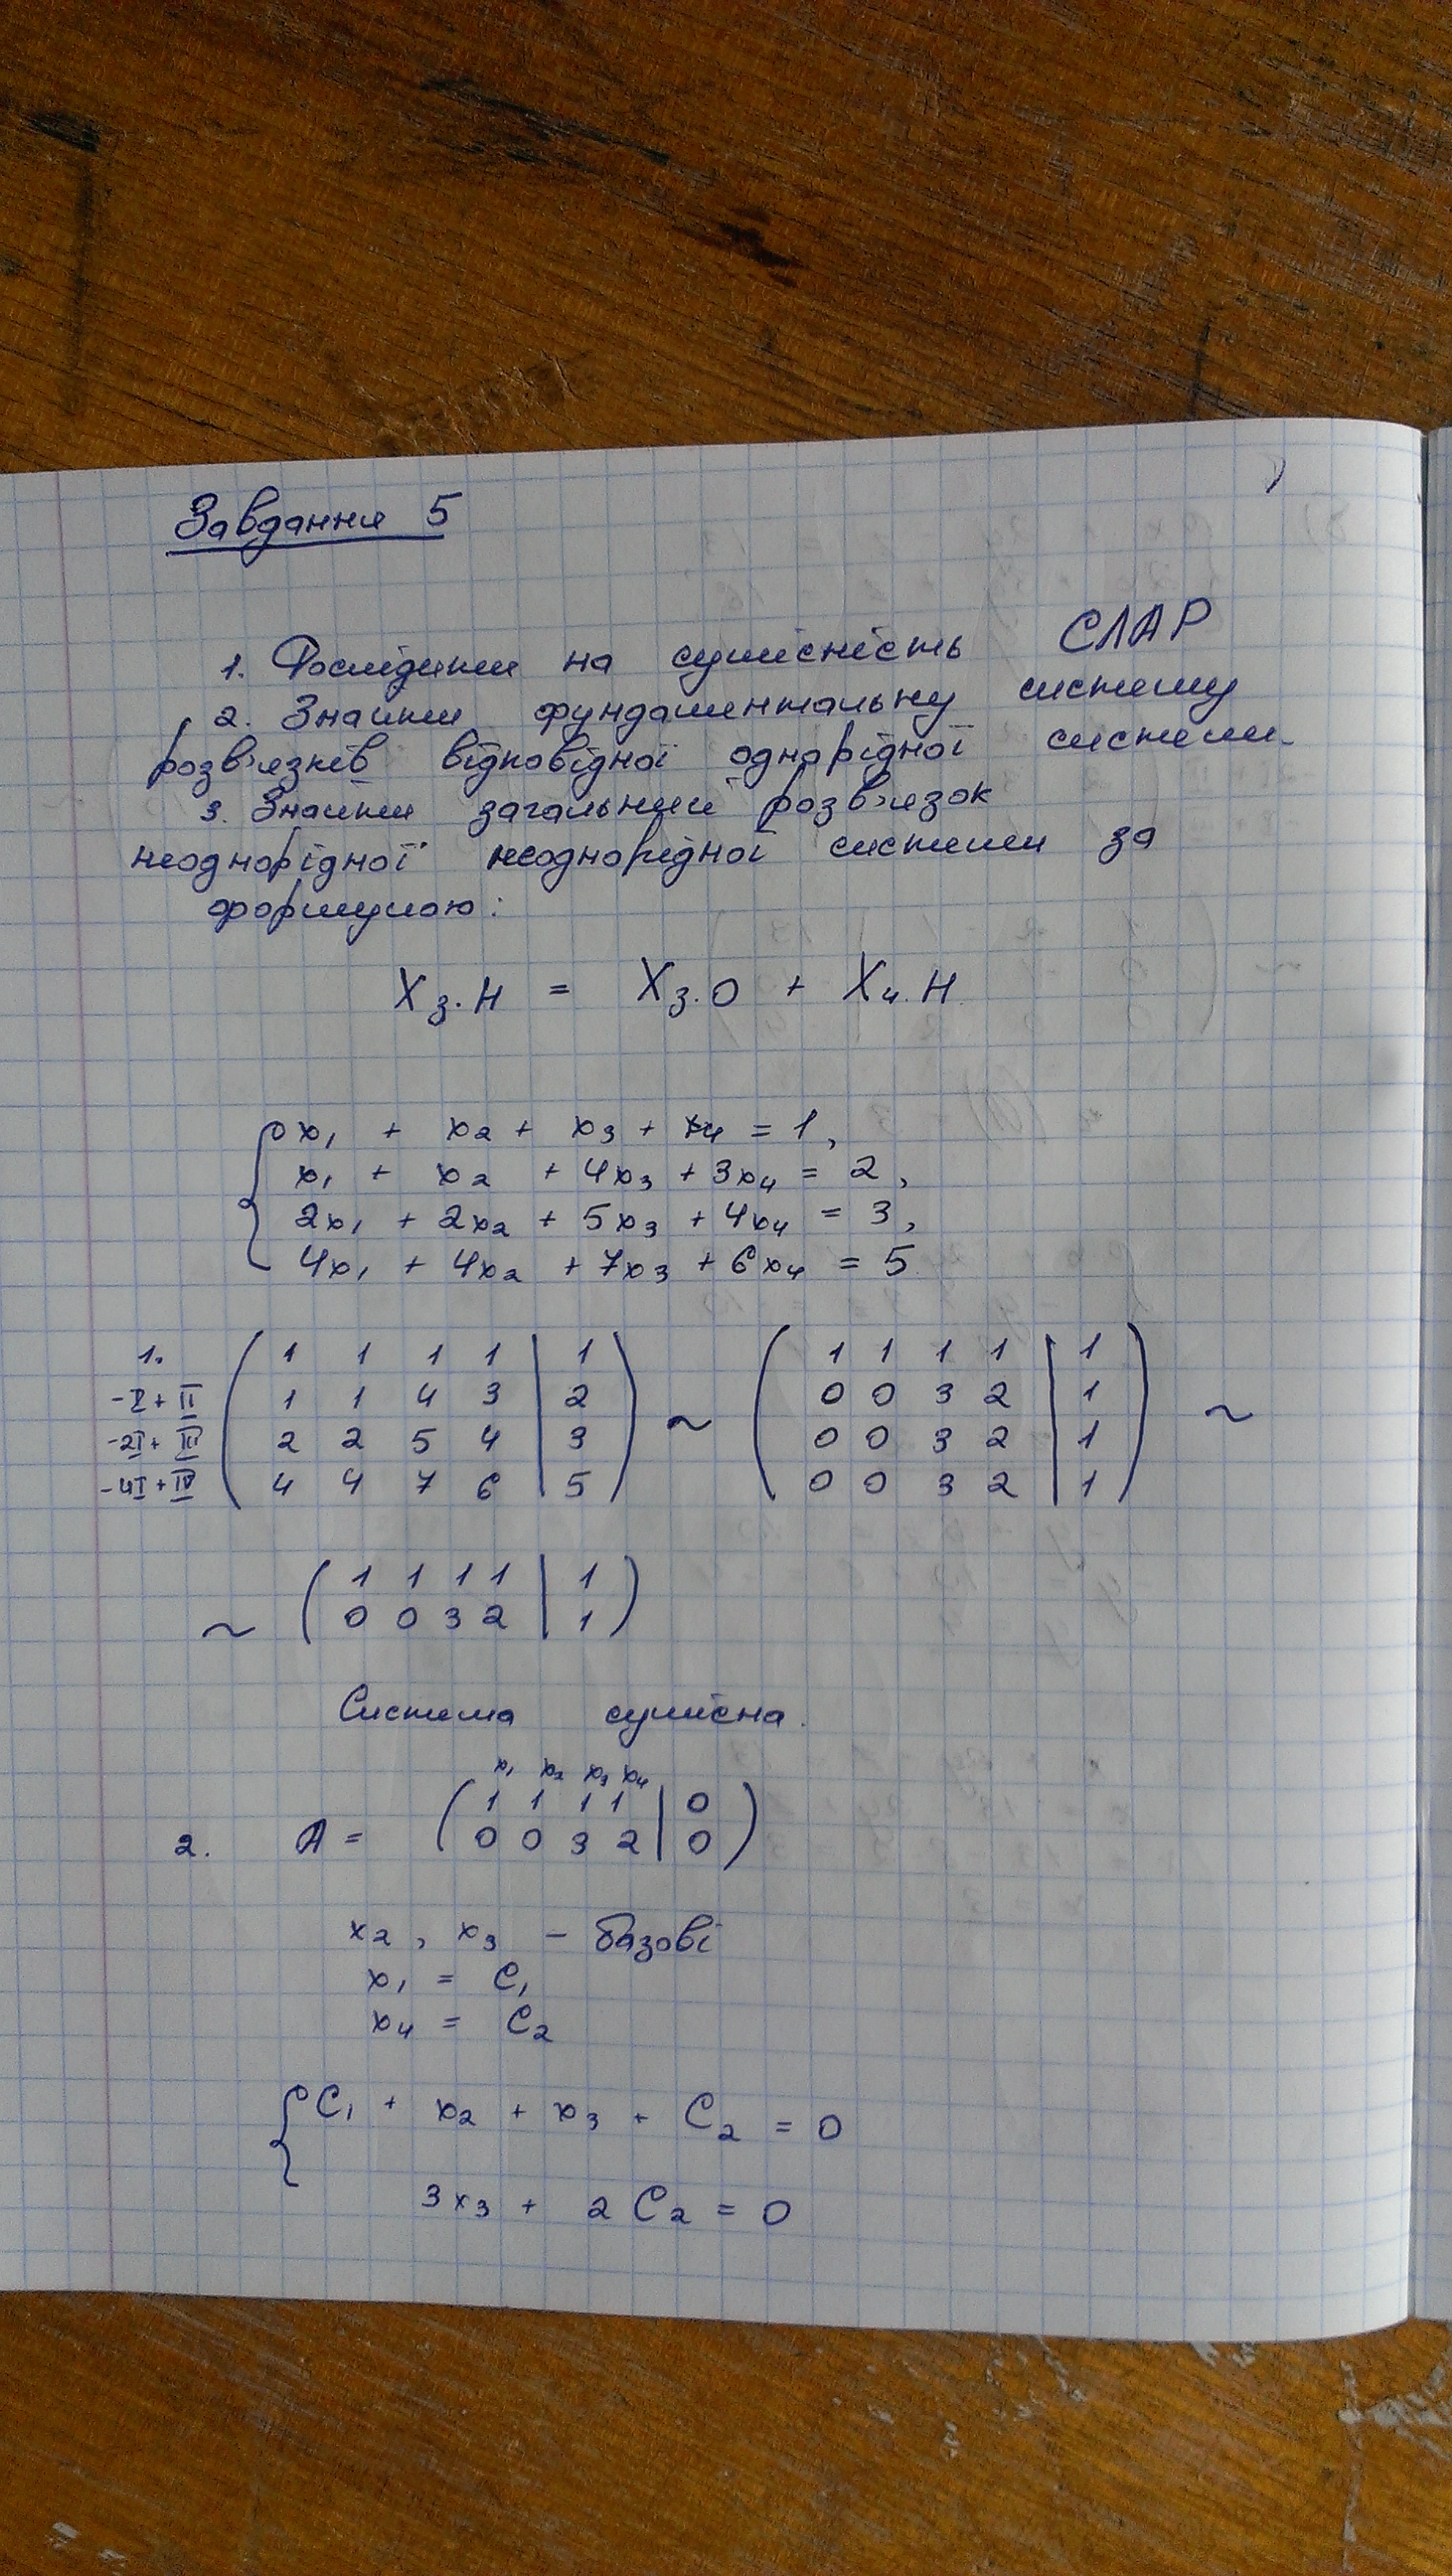 Завдання 5
1. Дослідити на сумісність СЛАР
2. Знайти фундаментальну систему
розв'язків відповідної однорідної системи.
3. Знайти загальний розв'язок
неоднорідної неоднорідної системи за
формулою:
X з.н = X з.о + X ч.н
x₁ + x₂ + x₃ + x₄ = 1,
x₁ + x₂ + 4x₃ + 3x₄ = 2,
2x₁ + 2x₂ + 5x₃ + 4x₄ = 3,
4x₁ + 4x₂ + 7x₃ + 6x₄ = 5
1. ( 1 1 1 1 | 1 ) ( 1 1 1 1 | 1 )
-I + II ( 1 1 4 3 | 2 ) ~ ( 0 0 3 2 | 1 ) ~
-2I + III ( 2 2 5 4 | 3 ) ( 0 0 3 2 | 1 )
-4I + IV ( 4 4 7 6 | 5 ) ( 0 0 3 2 | 1 )
( 1 1 1 1 | 1 )
~ ( 0 0 3 2 | 1 )
Система сумісна.
x₁ x₂ x₃ x₄
( 1 1 1 1 | 0 )
2. A = ( 0 0 3 2 | 0 )
x₂, x₃ - базові
x₁ = C₁
x₄ = C₂
C₁ + x₂ + x₃ + C₂ = 0
3x₃ + 2C₂ = 0